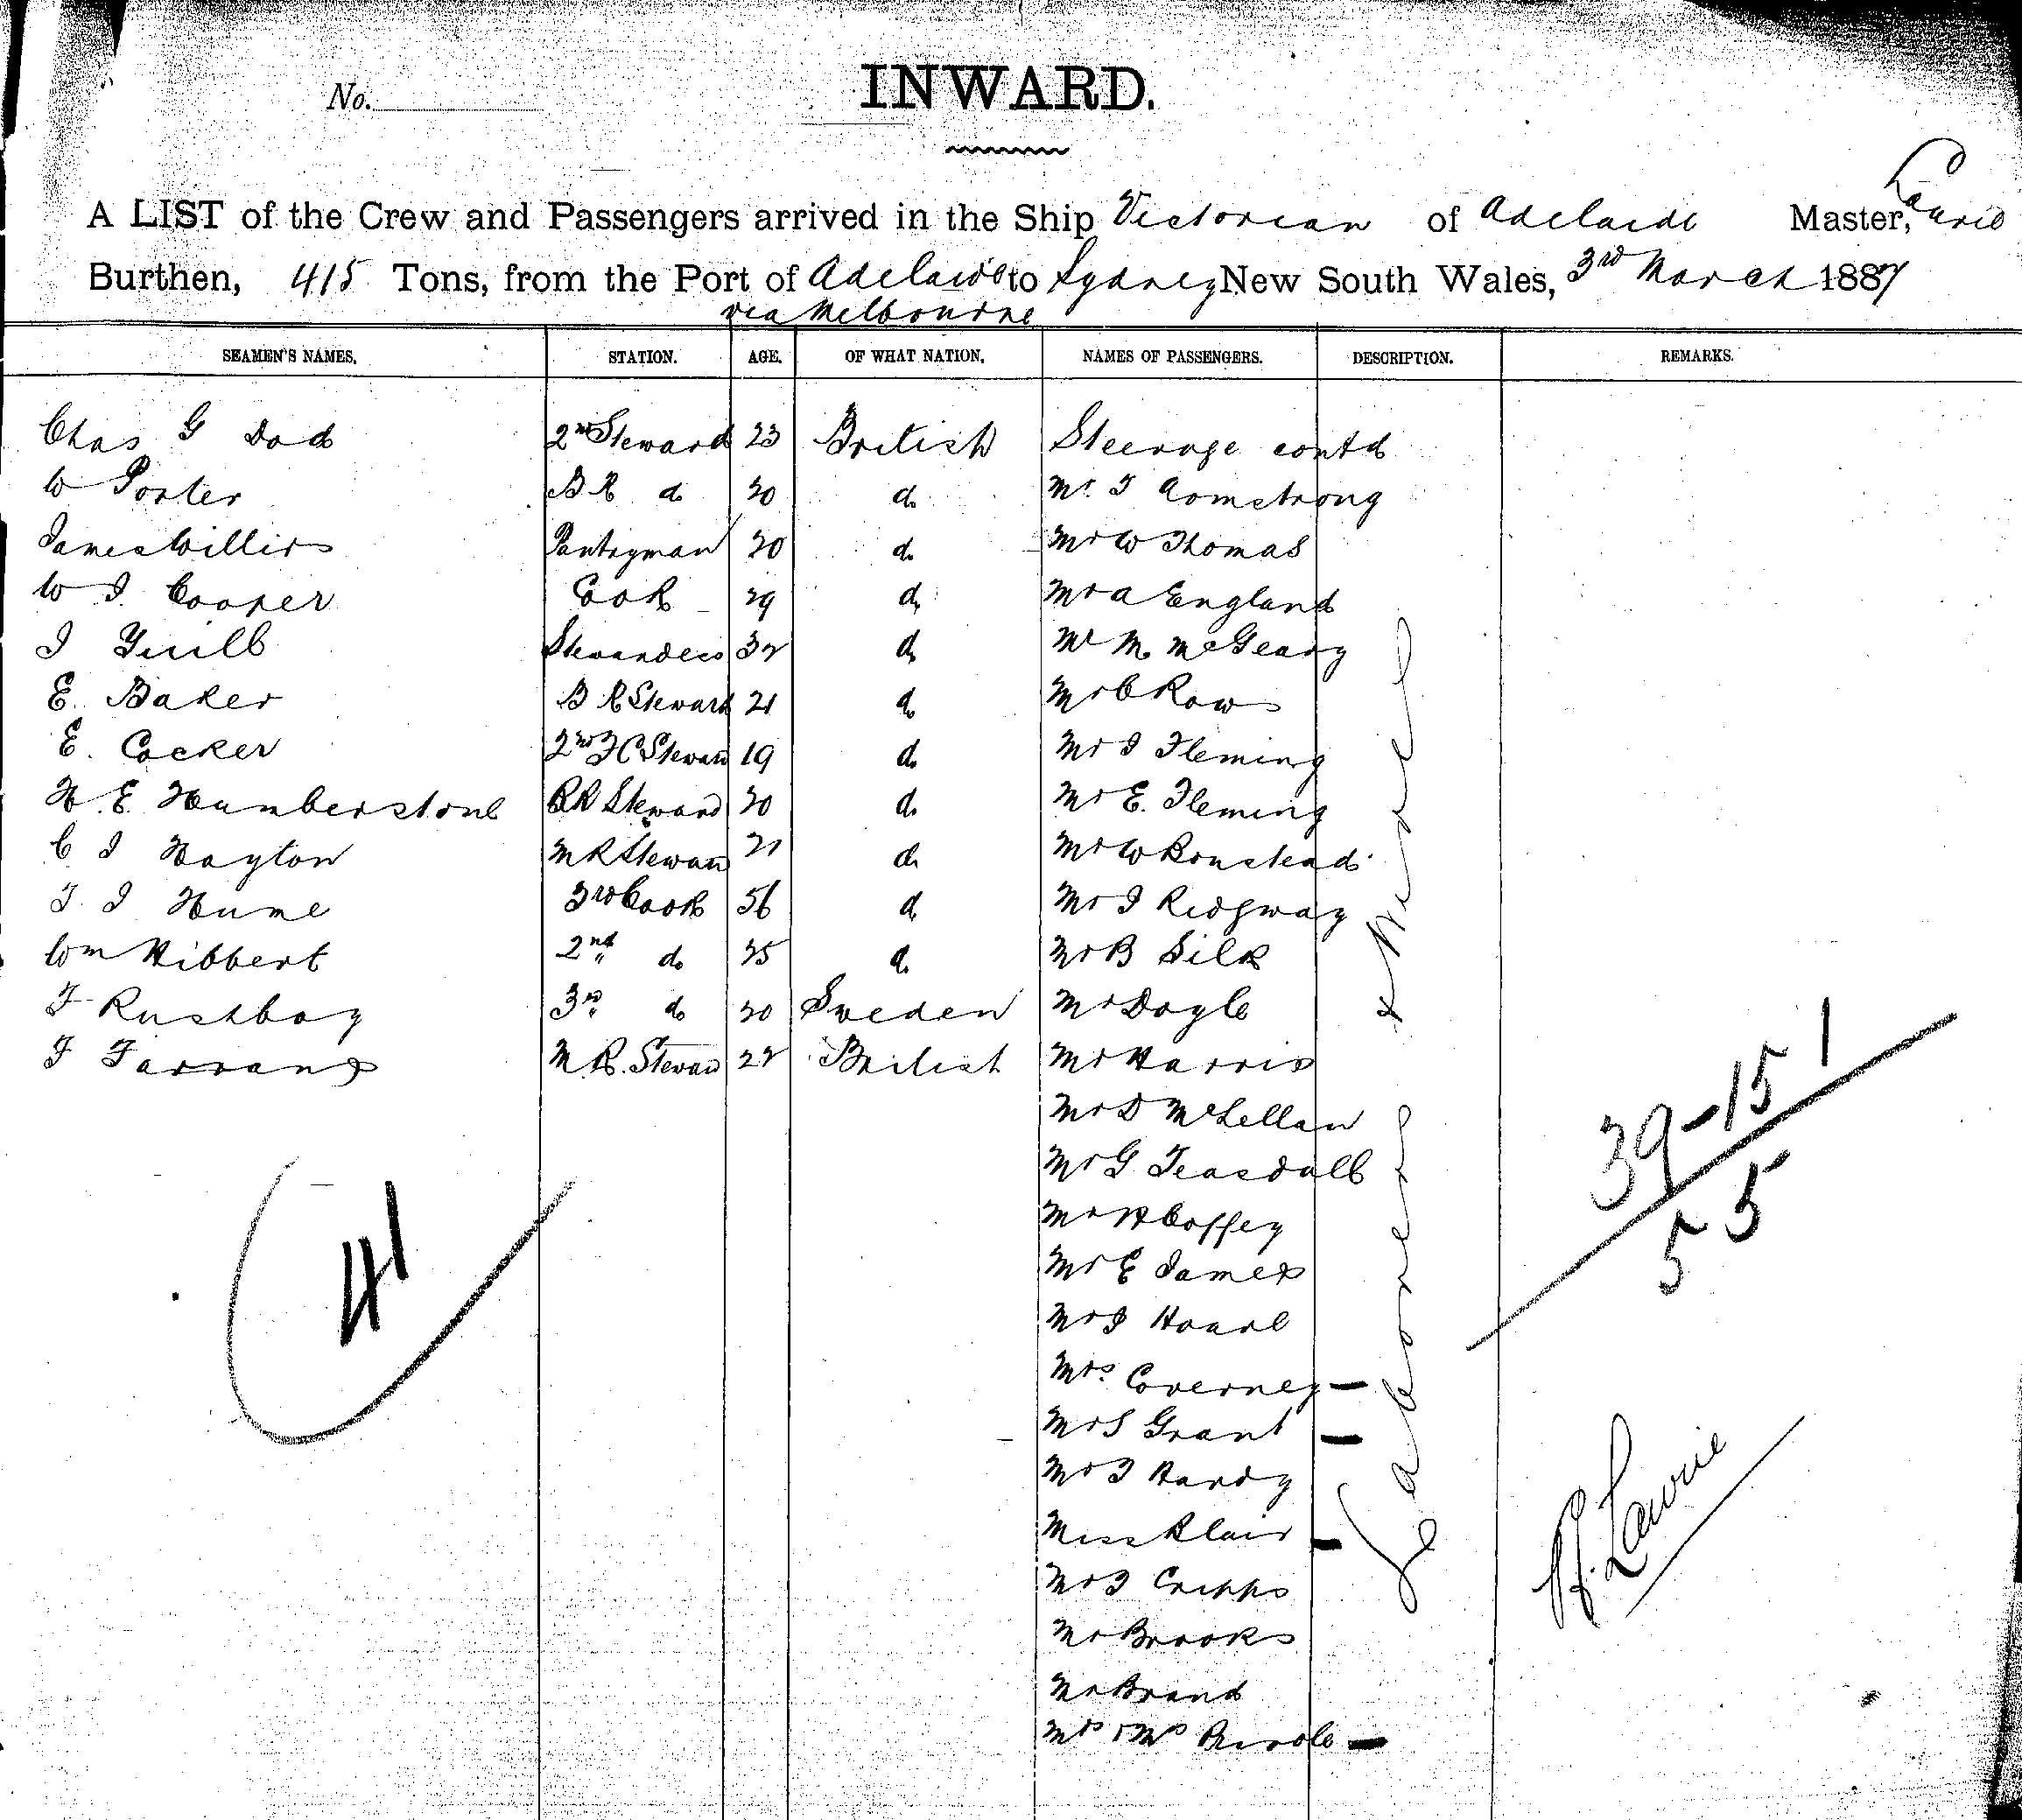 No.
INWARD.
A LIST of the Crew and Passengers arrived in the Ship Victorian of Adelaide Master, Laurie
Burthen, 415 Tons, from the Port of Adelaide to Sydney New South Wales, 3rd March 1887
via Melbourne
SEAMEN'S NAMES. STATION. AGE. OF WHAT NATION. NAMES OF PASSENGERS. DESCRIPTION. REMARKS.
Chas G Dod 2nd Steward 23 British Steerage contd
W Porter B R do 20 do Mr. T Armstrong
James Willis Pantryman 20 do Mr W Thomas
W J Cooper Cook 29 do Mr A England
J Stewardess 32 do Mr M McGeary
E. Baker B R Steward 21 do Mr C Row
E. Cocker 2nd F C Steward 19 do Mr J Fleming
H. E Humberstone B R Steward 20 do Mr E. Fleming
C J Hayton M R Steward 21 do Mr W Bonstead
T. J Hume 3rd Cook 56 do Mr J Ridgway
Wm Hibbert 2nd do 25 do Mr B Silk
F 3rd do 20 Sweden Mr Doyle
F Farrand M R. Steward 22 British Mr Harris
Mr D McLellan
Mr G Teasdall
Mr H Coffey
Mr E James
Mr J Hoare
Mrs. Coverney —
Mrs Grant —
Mr J Hardy
Miss Blair —
Mr J Cripps
Mr Brooks
Mr Brand
Mr & Mrs —
Labourers & Miners
41
39-15 1
55
Lawrie